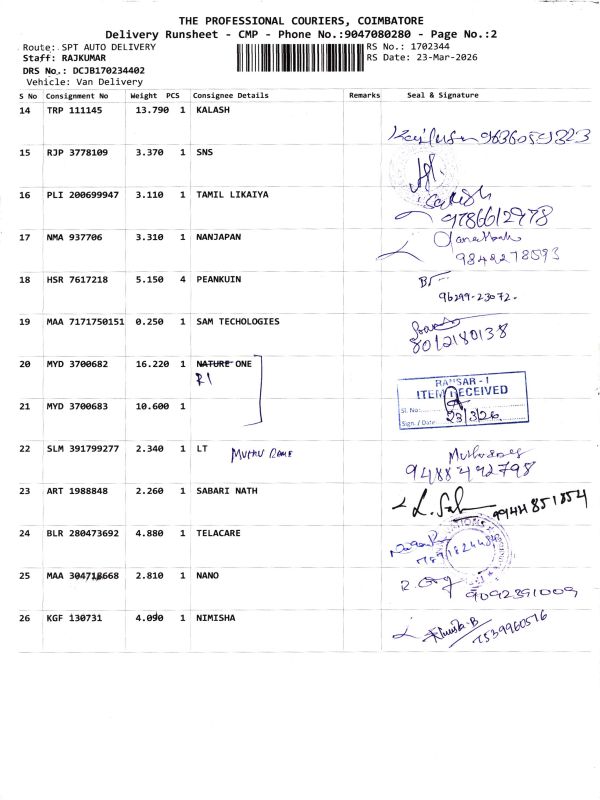 THE PROFESSIONAL COURIERS, COIMBATORE
Delivery Runsheet - CMP - Phone No.:9047080280 - Page No.:2
Route: SPT AUTO DELIVERY
RS No.: 1702344
Staff: RAJKUMAR
RS Date: 23-Mar-2026
DRS No.: DCJB170234402
Vehicle: Van Delivery
S No Consignment No Weight PCS Consignee Details Remarks Seal & Signature
14 TRP 111145 13.790 1 KALASH
15 RJP 3778109 3.370 1 SNS
16 PLI 200699947 3.110 1 TAMIL LIKAIYA
9786612978
17 NMA 937706 3.310 1 NANJAPAN
9842278593
18 HSR 7617218 5.150 4 PEANKUIN
96299-23072.
19 MAA 7171750151 0.250 1 SAM TECHOLOGIES
8012180138
20 MYD 3700682 16.220 1 NATURE ONE
R1
RANSAR - I
ITEM RECEIVED
21 MYD 3700683 10.600 1
Sl. No:
Sign / Date 23/3/26
22 SLM 391799277 2.340 1 LT
9488492798
23 ART 1988848 2.260 1 SABARI NATH
9944851854
24 BLR 280473692 4.880 1 TELACARE
25 MAA 304718668 2.810 1 NANO
9092391009
26 KGF 130731 4.090 1 NIMISHA
7539960516